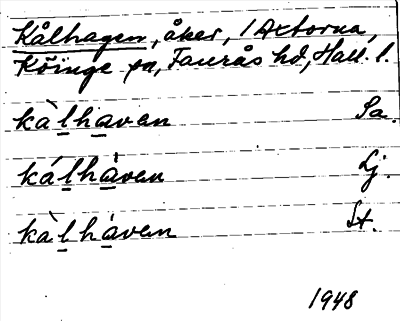 Kålhagen, åker, 1 Axtorna,
Köinge sn, Faurås hd, Hall. l.
kàlhavan Sa.
kálhàvan Lj.
kàlhávan St.
1948